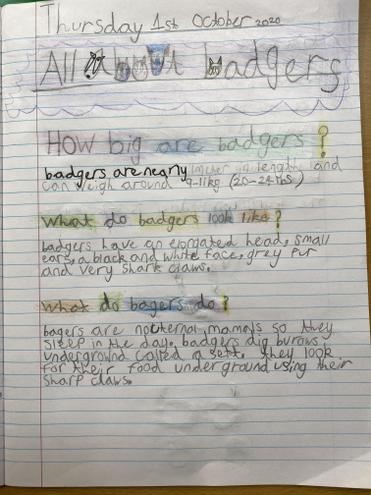 Thursday 1st October 2020
All About badgers
How big are badgers?
badgers are nearly 1meter in length and
can weigh around 9-11kg (20-24lbs.)
What do badgers look like?
badgers have an elongated head, small
ears, a black and white face, grey fur
and very shark claws.
What do bagers do?
bagers are nocternal mamals so they
sleep in the day. badgers dig burows
underground called a sett. they look
for their food underground using their
sharp claws.